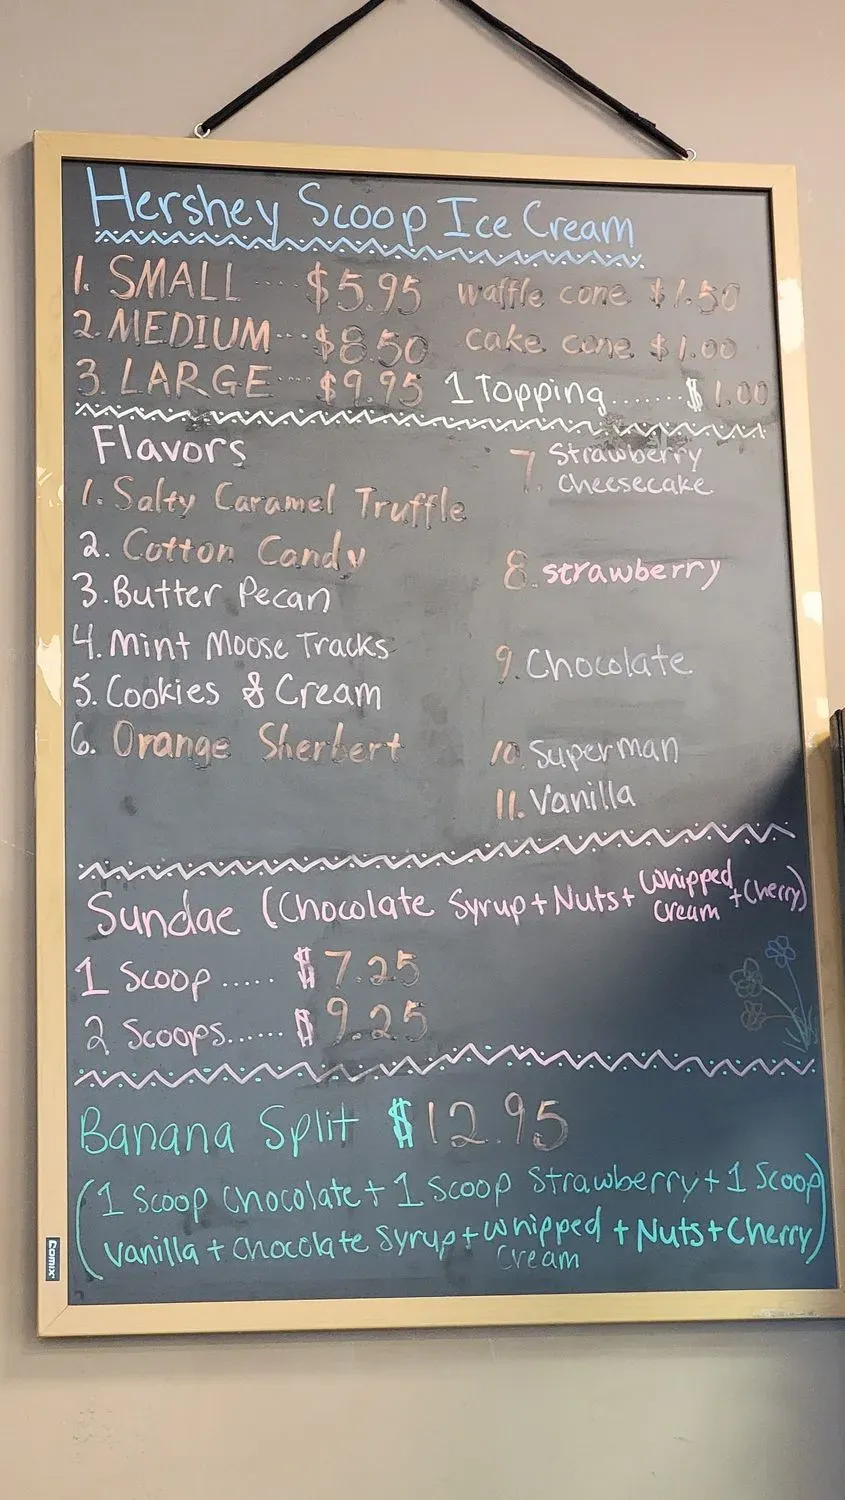 Hershey Scoop Ice Cream
1. SMALL ... $5.95 waffle cone $1.50
2. MEDIUM ... $8.50 cake cone $1.00
3. LARGE ... $9.95 1 Topping....... $1.00
Flavors
1. Salty Caramel Truffle
2. Cotton Candy
3. Butter Pecan
4. Mint Moose Tracks
5. Cookies & Cream
6. Orange Sherbert
7. Strawberry
Cheesecake
8. strawberry
9. Chocolate
10. Superman
11. Vanilla
Sundae (Chocolate Syrup + Nuts + Whipped Cream + Cherry)
1 Scoop ..... $7.25
2 Scoops...... $9.25
Banana Split $12.95
(1 Scoop Chocolate + 1 Scoop Strawberry + 1 Scoop
Vanilla + Chocolate Syrup + Whipped Cream + Nuts + Cherry)
Comix